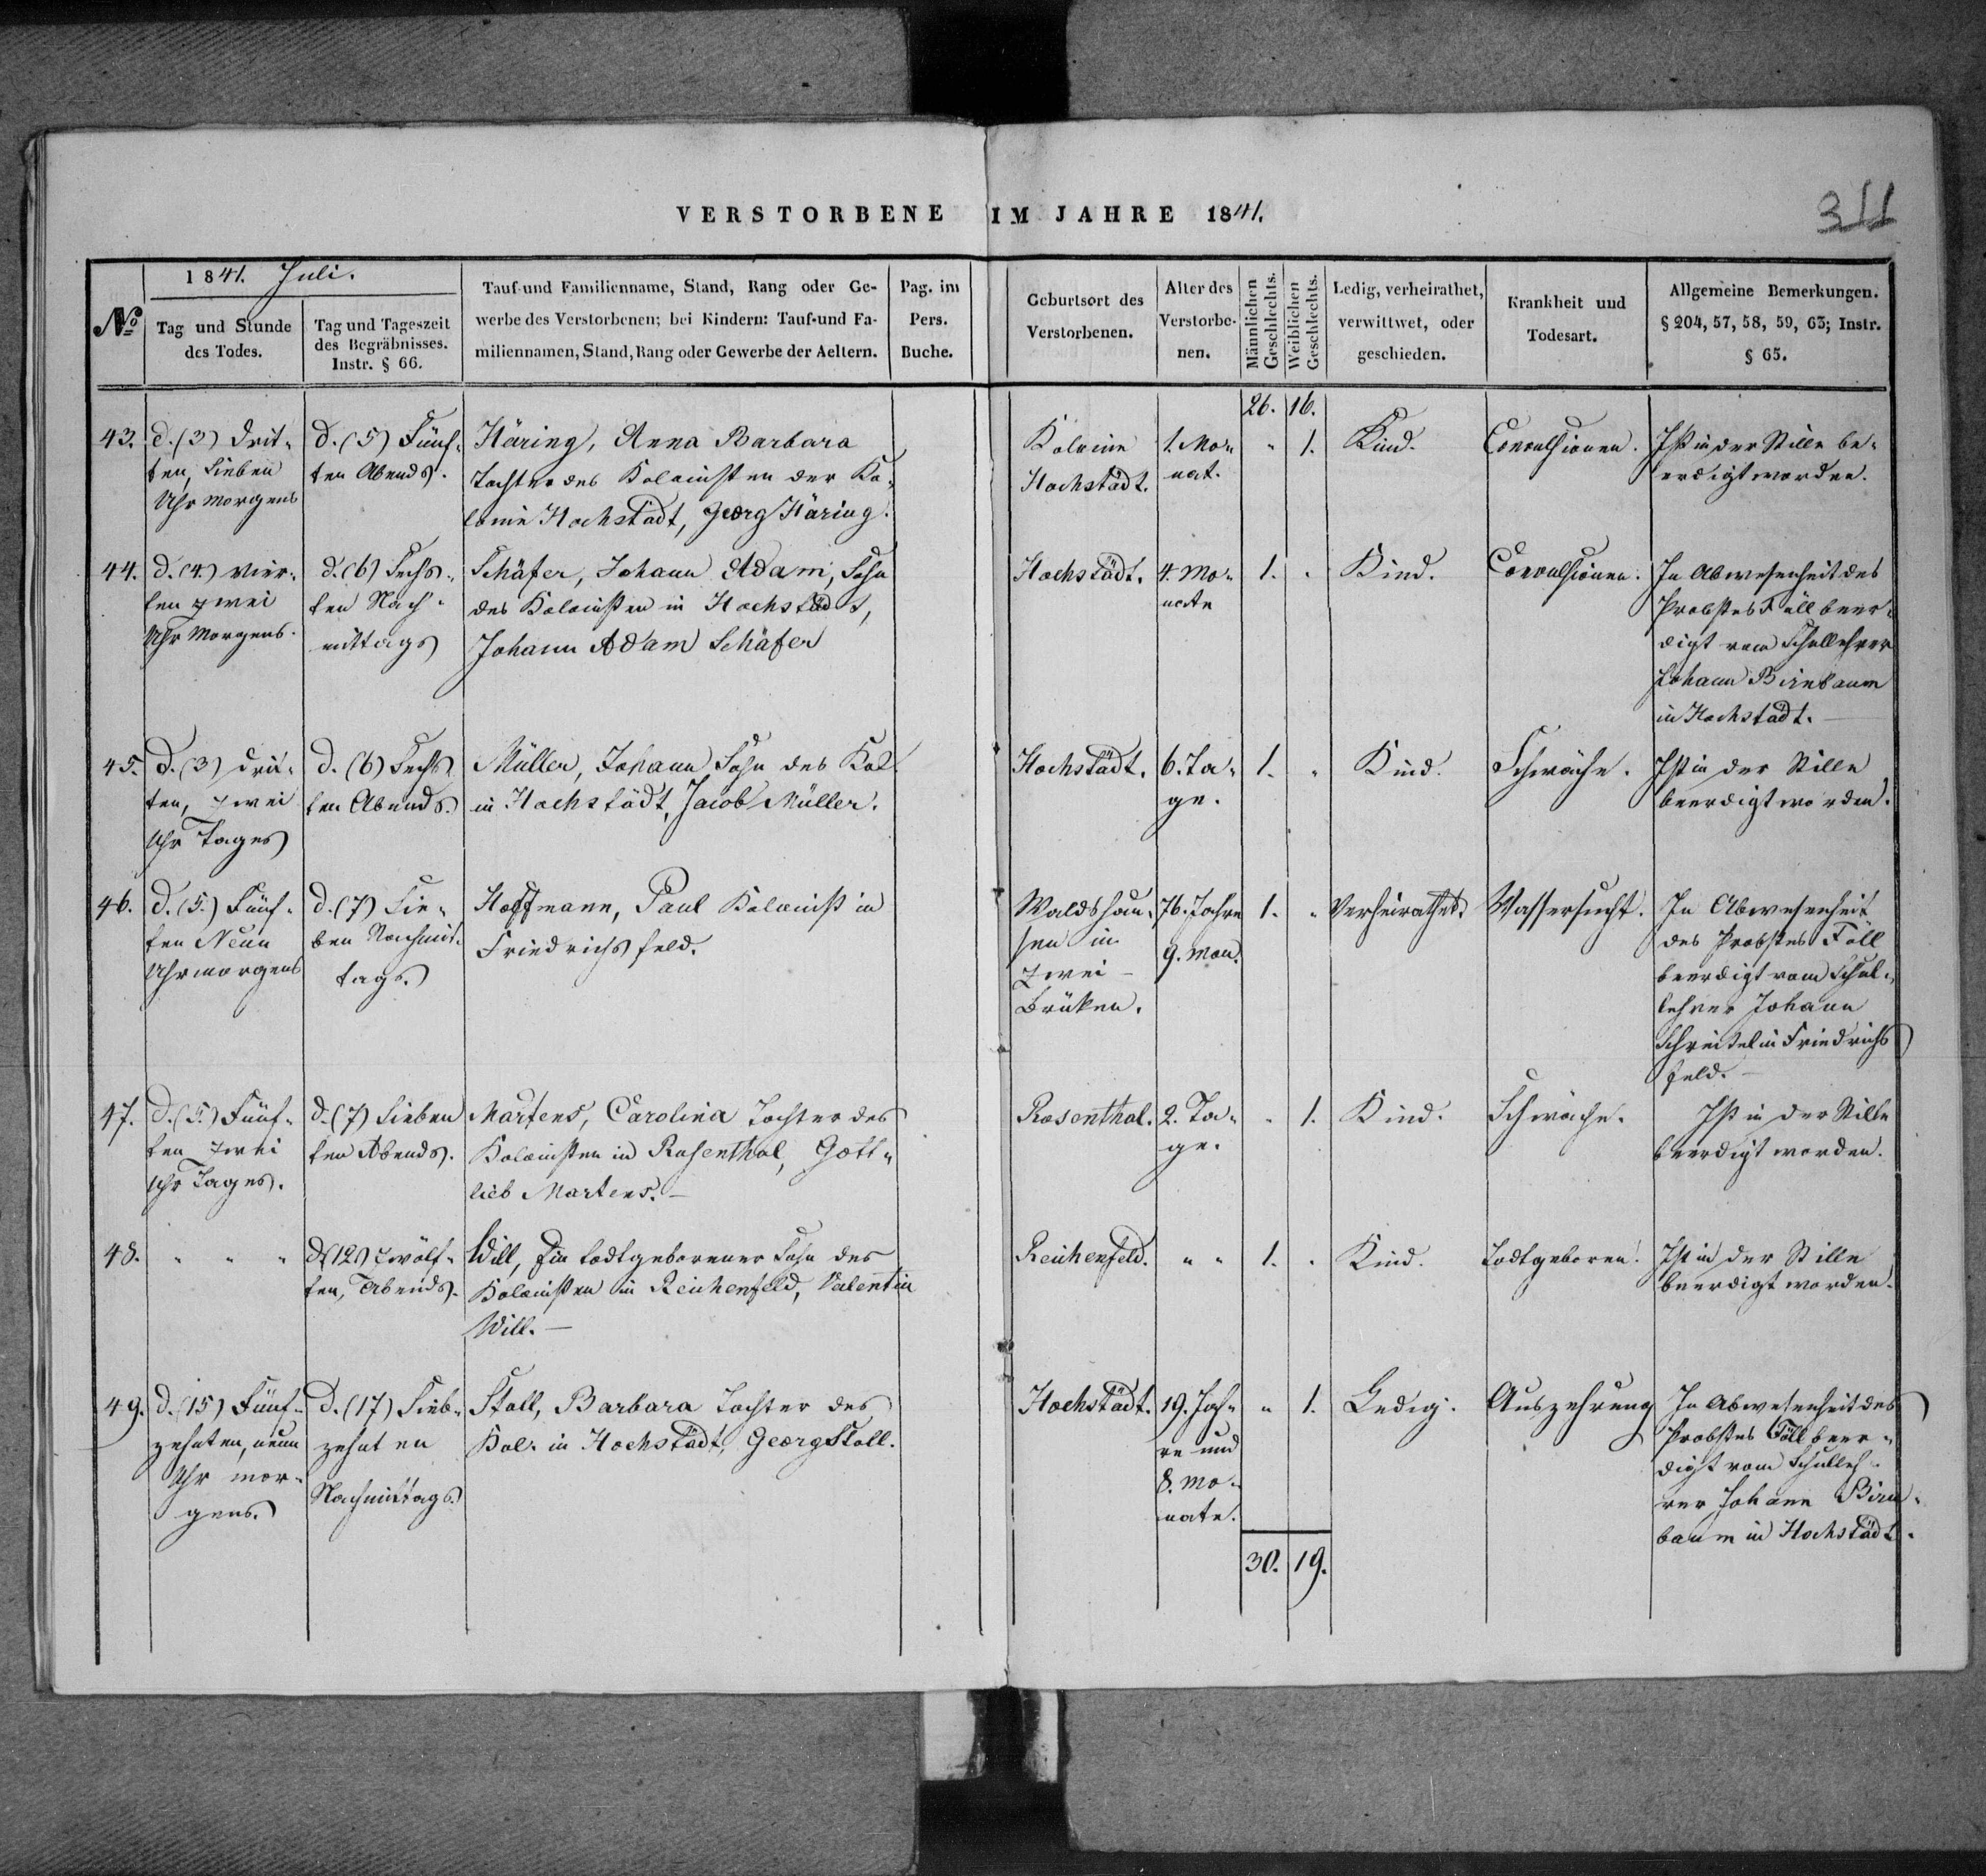 VERSTORBENE IM JAHRE 1841.
311
No
1841. Juli.
Tag und Stunde
des Todes.
Tag und Tageszeit
des Begräbnisses.
Instr. § 66.
Tauf-und Familienname, Stand, Rang oder Ge-
werbe des Verstorbenen; bei Kindern: Tauf-und Fa-
miliennamen, Stand, Rang oder Gewerbe der Aeltern.
Pag. im
Pers.
Buche.
Geburtsort des
Verstorbenen.
Alter des
Verstorbe-
nen.
Männlichen
Geschlechts.
Weiblichen
Geschlechts.
Ledig, verheirathet,
verwittwet, oder
geschieden.
Krankheit und
Todesart.
Allgemeine Bemerkungen.
§ 204, 57, 58, 59, 63; Instr.
§ 65.
26. 16.
43.
d. (3) Drit-
ten, Sieben
Uhr Morgens
d. (5) Fünf-
ten Abends.
Häring, Anna Barbara
Tochter des Kolonisten der Ko-
lonie Hochstädt, Georg Häring.
Kolonie
Hochstädt.
1. Mo-
nat.
" 1.
Kind.
Convulsionen.
Ist in der Stille be-
erdigt worden.
44.
d. (4.) vier-
ten zwei
Uhr Morgens.
d. (6) Sechs-
ten Nach-
mittags
Schäfer, Johann Adam, Sohn
des Kolonisten in Hochstädt,
Johann Adam Schäfer
Hochstädt.
4. Mo-
nate
1. "
Kind.
Convulsionen.
In Abwesenheit des
Probstes Föll beer-
digt vom Schullehrer
Johann Birnbaum
in Hochstädt. —
45.
d. (3) drit-
ten, zwei
Uhr Tages
d. (6) Sechs-
ten Abends.
Müller, Johann Sohn des Kol.
in Hochstädt, Jacob Müller.
Hochstädt.
6. Ta-
ge.
1. "
Kind.
Schwäche.
Ist in der Stille
beerdigt worden.
46.
d. (5.) Fünf-
ten Neun
Uhr morgens
d. (7) Sie-
ben Nachmit-
tags.
Hoffmann, Paul Kolonist in
Friedrichsfeld.
Waldshau-
sen in
Zwei-
brüken.
76. Jahre
9. Mon.
1. "
Verheirathet.
Wassersucht.
In Abwesenheit
des Probstes Föll
beerdigt vom Schul-
lehrer Johann
Schreitel in Friedrichs
feld. —
47.
d. (5.) Fünf-
ten zwei
Uhr Tages.
d. (7) Sieben
ten Abends.
Martens, Carolina Tochter des
Kolonisten in Rosenthal, Gott-
lieb Martens. —
Rosenthal.
2. Ta-
ge.
" 1.
Kind.
Schwäche.
Ist in der Stille
beerdigt worden.
48.
" " "
d. (12) Zwölf-
ten, Abends.
Will, Ein todtgeborener Sohn des
Kolonisten in Reichenfeld, Valentin
Will. —
Reichenfeld.
" "
1. "
Kind.
Todtgeboren.
Ist in der Stille
beerdigt worden.
49.
d. (15) Fünf-
zehnten, neun
Uhr mor-
gens.
d. (17) Sieb-
zehnten
Nachmittags.
Stoll, Barbara Tochter des
Kol. in Hochstädt, Georg Stoll.
Hochstädt.
19. Jah-
re und
8. Mo-
nate.
" 1.
Ledig.
Auszehrung
In Abwesenheit des
Probstes Föll beer-
digt vom Schulleh-
rer Johann Birn-
baum in Hochstädt.
30. 19.